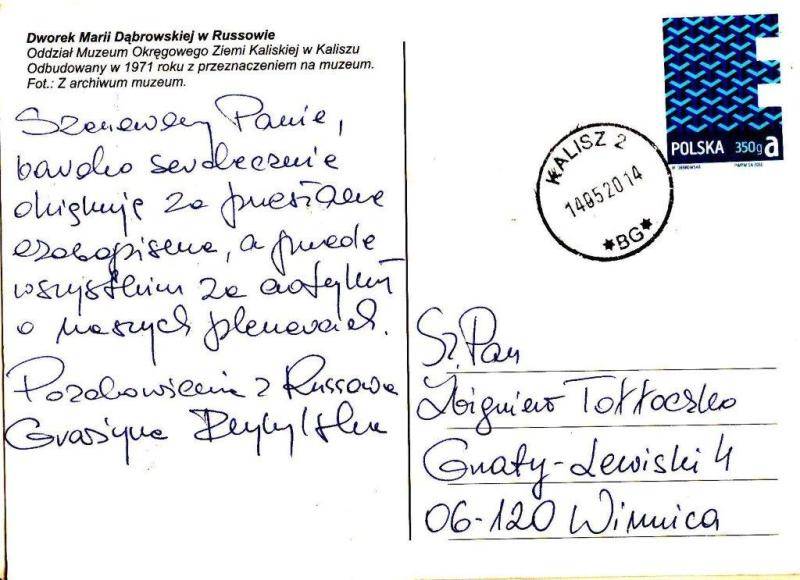 Dworek Marii Dąbrowskiej w Russowie
Oddział Muzeum Okręgowego Ziemi Kaliskiej w Kaliszu
Odbudowany w 1971 roku z przeznaczeniem na muzeum.
Fot.: Z archiwum muzeum.
Szanowny Panie,
bardzo serdecznie
dziękuję za przesłane
czasopisma, a przede
wszystkim za artykuł
o naszych plenerach.
Pozdrowienia z Russowa
Grażyna
POLSKA 350g a
KALISZ 2
14052014
*BG*
Sz. Pan
Zbigniew Tołłoczko
Gnaty-Lewiski 4
06-120 Winnica